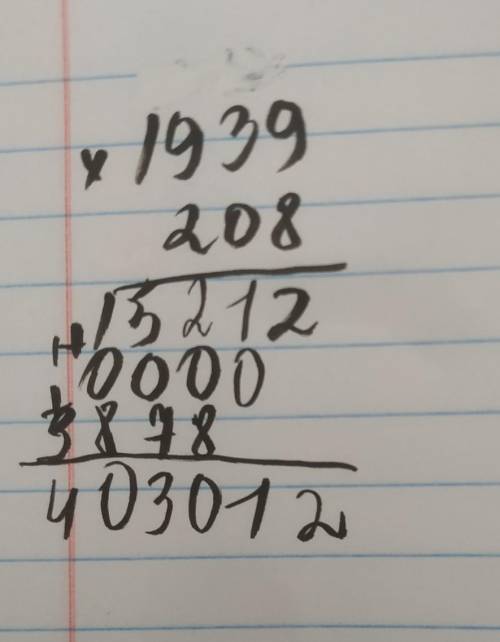 × 1939
208
15212
+ 0000
+ 3878
403012